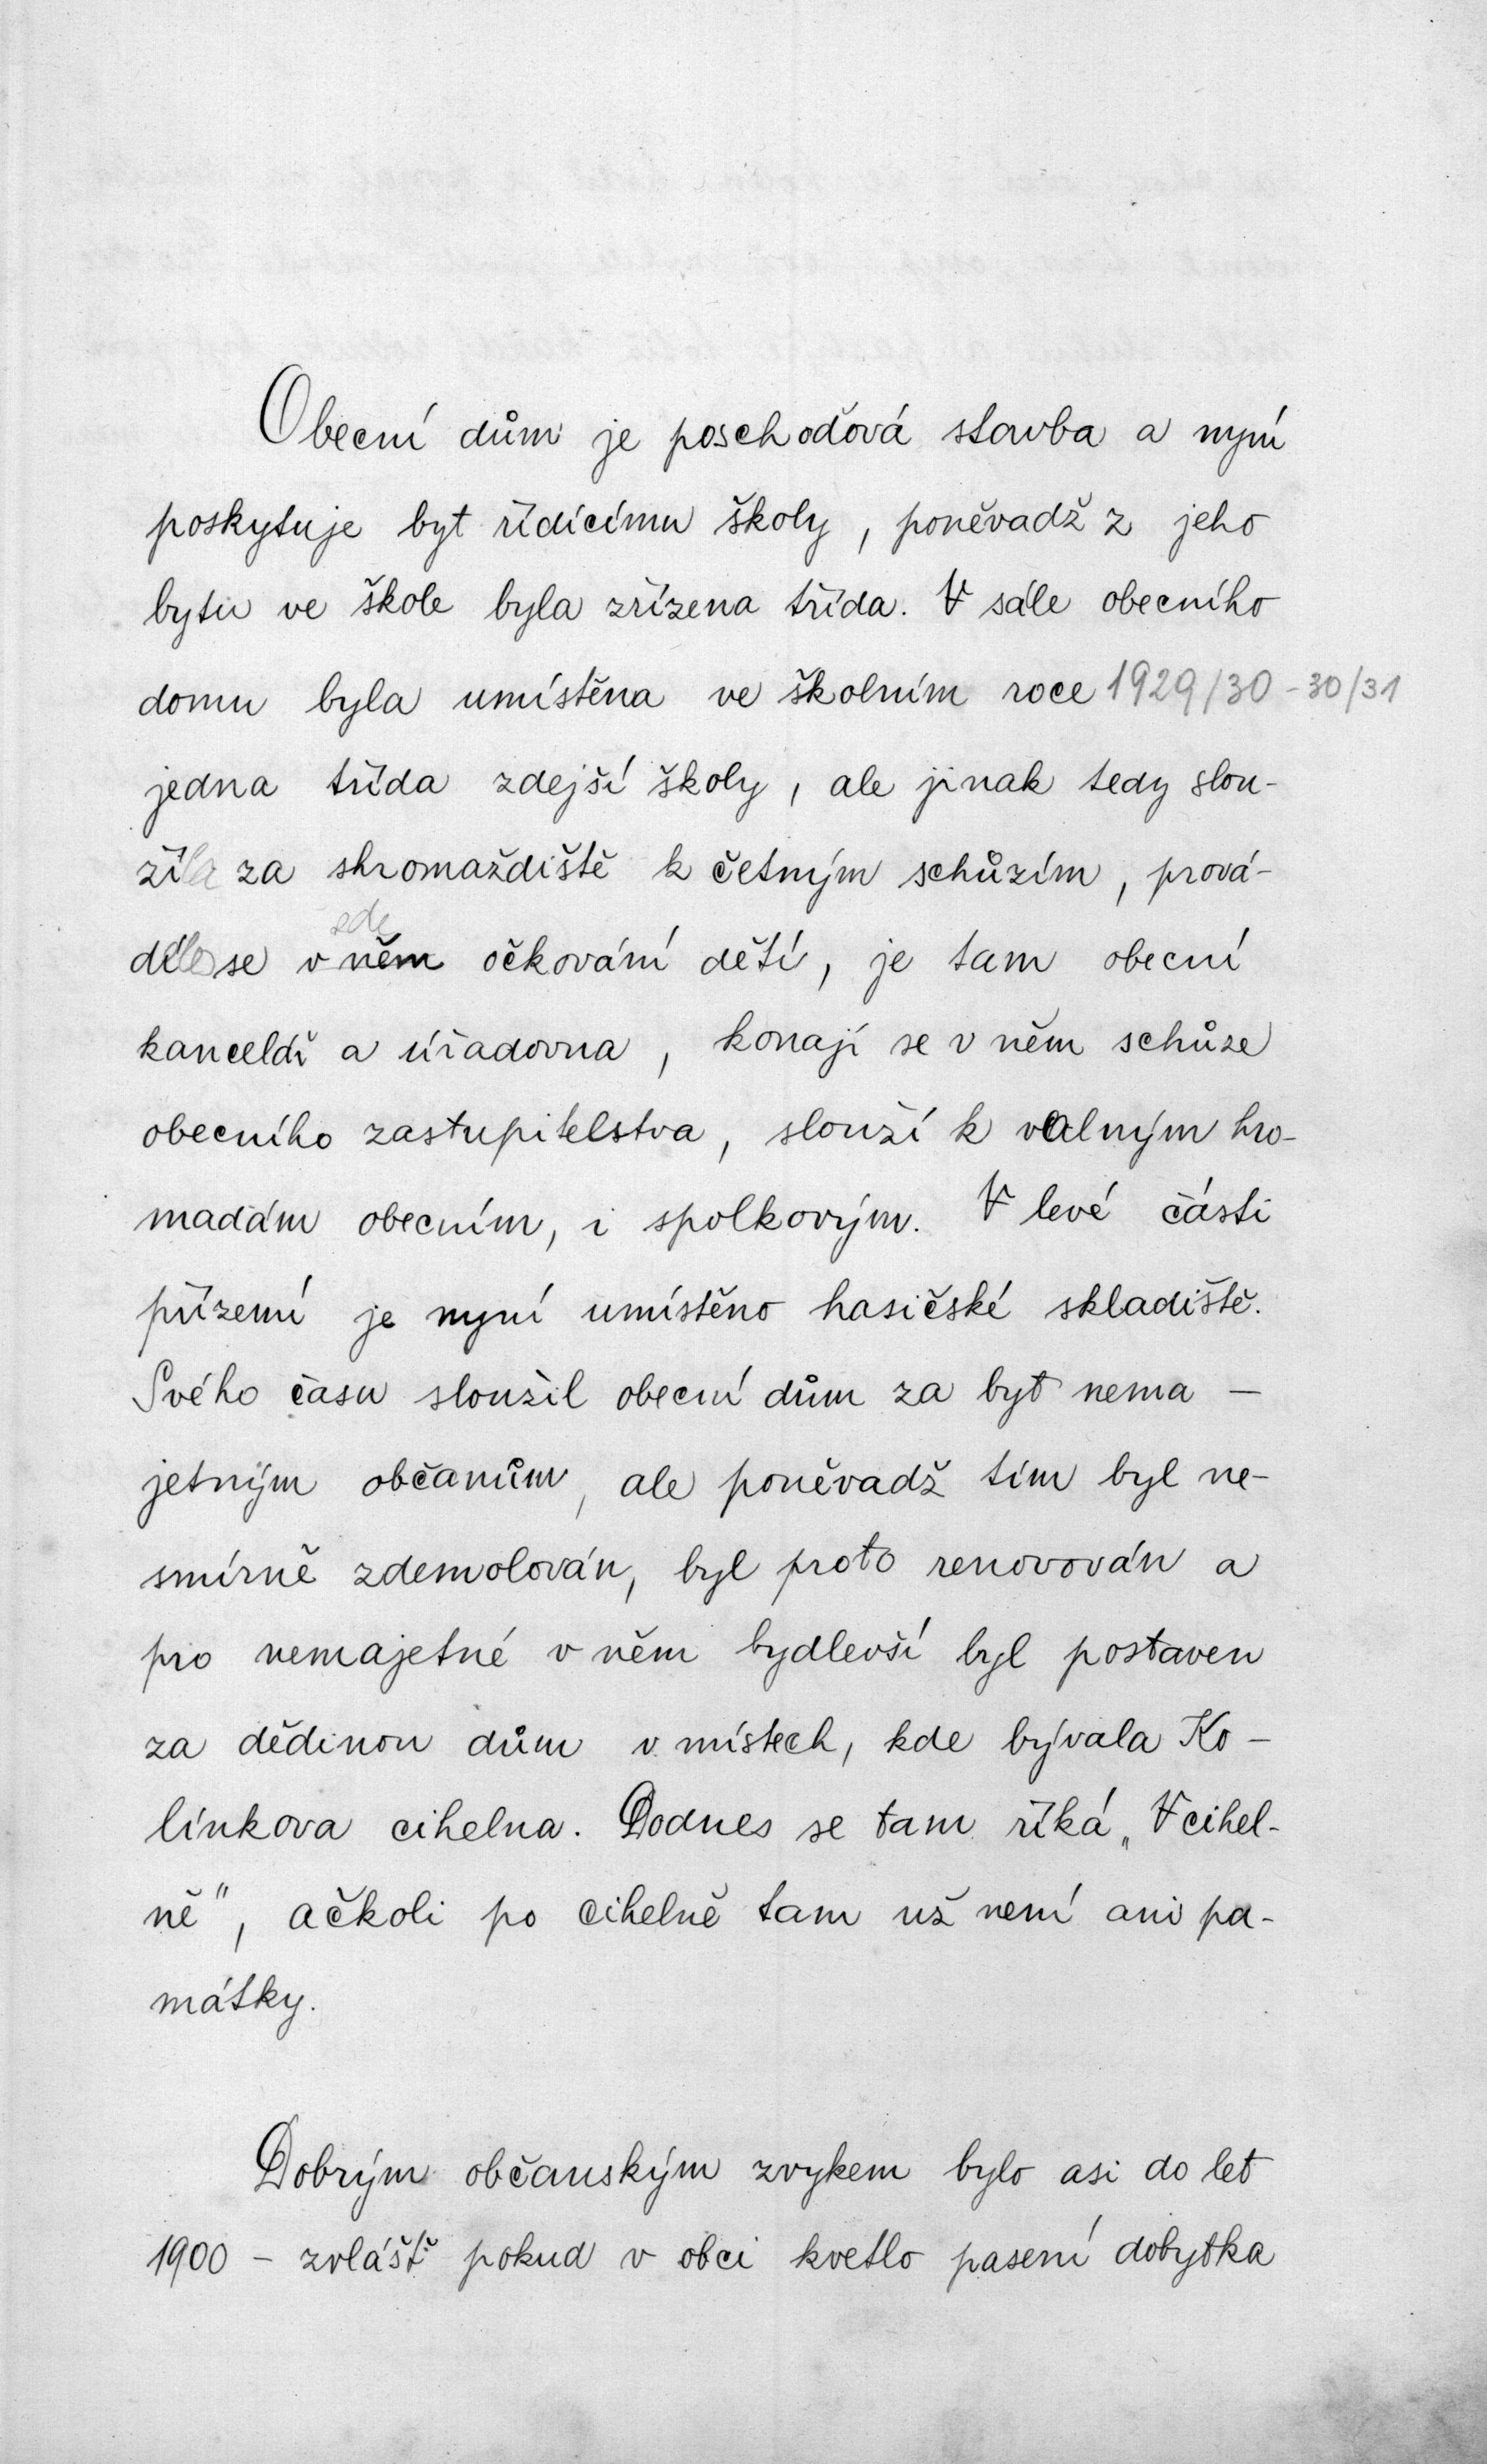 Obecní dům je poschoďová stavba a nyní
poskytuje byt řídícímu školy, poněvadž z jeho
bytu ve škole byla zřízena třída. V sále obecního
domu byla umístěna ve školním roce 1929/30 - 30/31
jedna třída zdejší školy, ale jinak tedy slou-
žila za shromaždiště k četným schůzím, prová-
dělo se v něm očkování dětí, je tam obecní
kancelář a úřadovna, konají se v něm schůze
obecního zastupitelstva, slouží k valným hro-
madám obecním, i spolkovým. V levé části
přízemí je nyní umístěno hasičské skladiště.
Svého času sloužil obecní dům za byt nema -
jetným občanům, ale poněvadž tím byl ne-
smírně zdemolován, byl proto renovován a
pro nemajetné v něm bydlevší byl postaven
za dědinou dům v místech, kde bývala Ko -
línkova cihelna. Dodnes se tam říká „V cihel-
ně", ačkoli po cihelně tam už není ani pa-
mátky.
Dobrým občanským zvykem bylo asi do let
1900 - zvláště pokud v obci kvetlo pasení dobytka